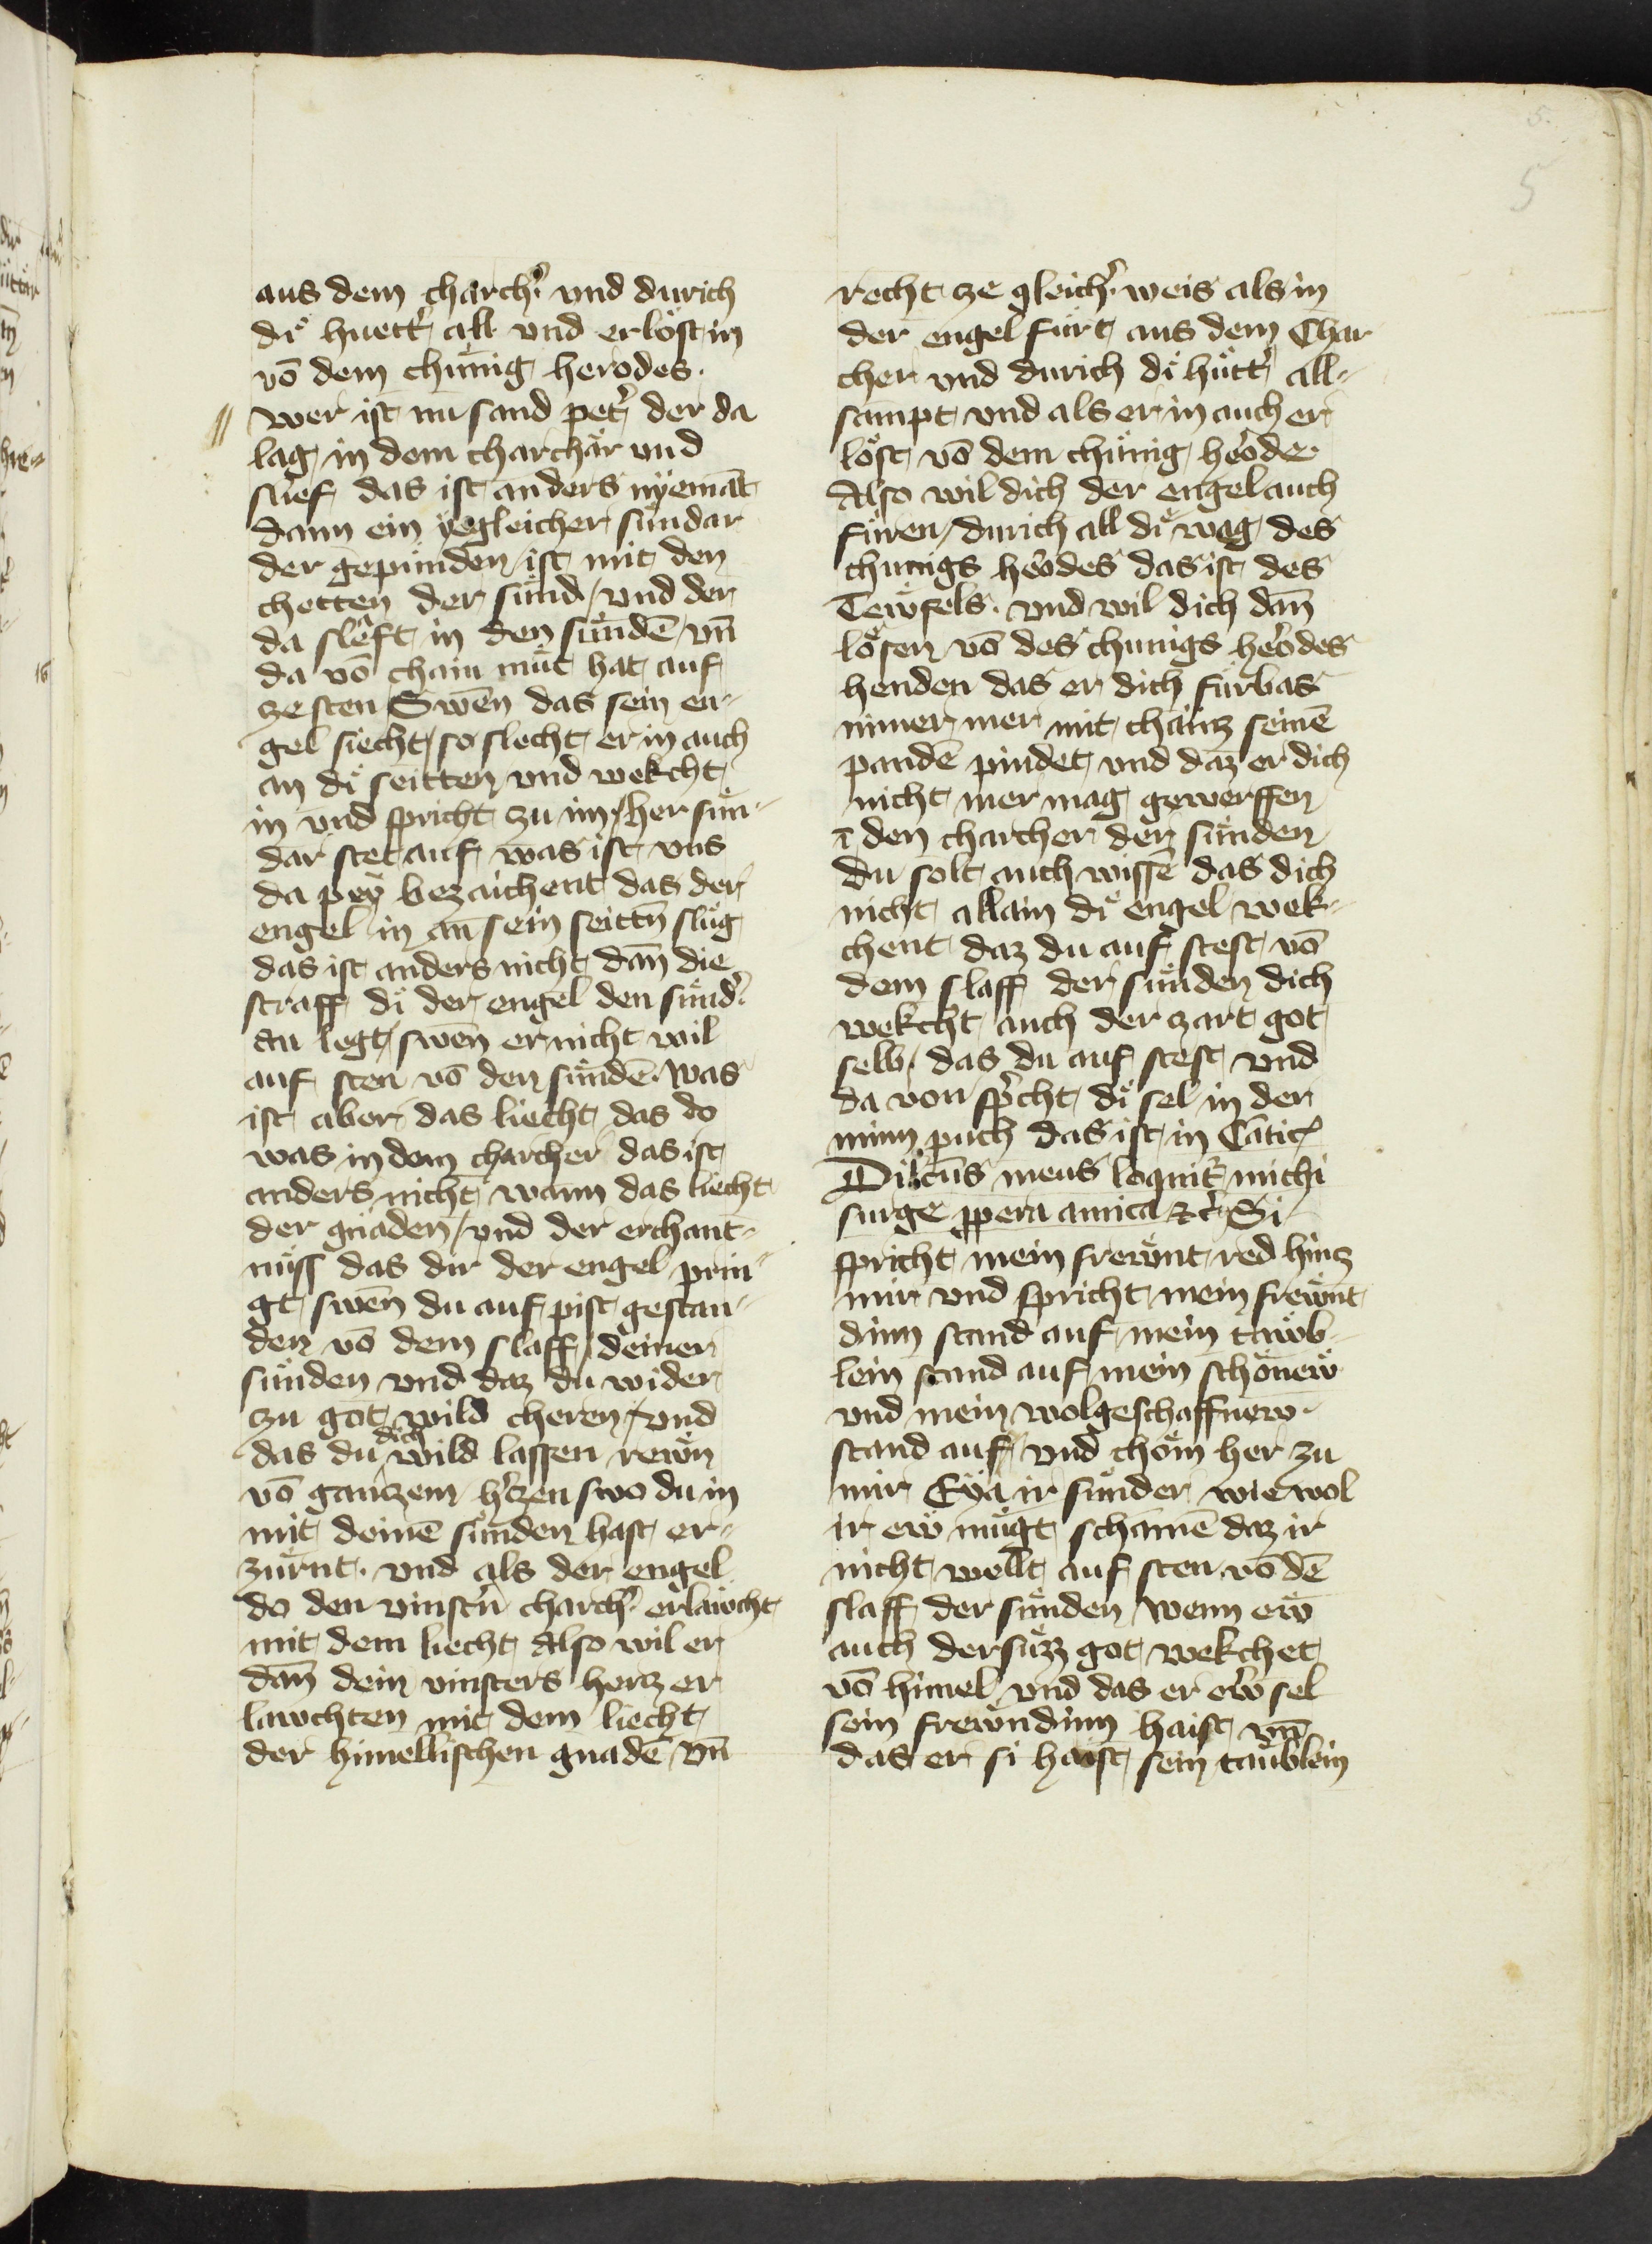 5.
5
aus dem charch̉ vnd durich
di huett̉ all vnd erlöst in
vō dem chünig herodes.
wer ist nu sand pet̉ der da
lag in dem charchär vnd
slief das ist anders nÿemāt
dann ein yegleicher sündar
der gepunden ist mit den
chetten der sünd / vnd der
da sleft in den sündē / vn̄
da vō chain müt hat auf
ze sten Swen̄ das sein en-
gel siecht / so slecht er in auch
an di seitten vnd wekcht
in vnd spricht zu im / her sün-
dar stet auf was ist vns
da peÿ bezaichent das der
engel in an̄ sein seittn̄ slüg
das ist anders nicht dan̄ die
straff di der engel den sünd̉
an legt / swen̄ er nicht wil
auf sten vō den sündē. was
ist aber das liecht das do
was in dem charcher das ist
anders nicht wann das liecht
der gnaden / vnd der erchant-
nüss das dir der engel prin-
gt / swen̄ du auf pist gestan-
den vō dem slaff deiner
sünden vnd daz du wider
zu got wild cheren / vnd
das du dich wild lassen rewn
vō ganczem h̉czen swo du in
mit deinē sünden hast er-
zürnt. vnd als der engel
do den vinst̉n charch̉ erlawcht
mit dem liecht Also wil er
dan̄ dein vinsters hercz er
lawchten mit dem liecht
der himellischen gnadē vn̄
recht ze gleich̉ weis als in
der engel fürt aus dem Char
cher vnd durich di hütt̉ all-
sampt vnd als er in auch er
löst vō dem chünig h̉ode.
Also wil dich der engel auch
füren / durich all di weg des
chunigs h̉odes das ist des
Tewfels. vnd wil dich dan̄
lösen vō des chunigs h̉odes
henden das er dich fürbas
nimer mer mit chainz seinē
pandē pindet vnd daz er dich
nicht mer mag gewerffen
ī den charcher der sünden
du solt auch wissē das dich
nicht allain di engel wek-
chent daz du auf stest vō
dem slaff der sünden dich
wekcht auch der zart got
selb / das du auf stest vnd
da von sp̉cht di sel in der
minn puch das ist in Cātic̉
Dilc̄us meus loquit̉ michi
surge ꝓpera amica ⁊c̉ Si
spricht mein frewnt red hincz
mir vnd spricht mein frewnt
dinn stand auf mein tawb-
lein stand auf mein schönew
vnd mein wolgeschaffnew.
stand auf / vnd chöm her zu
mir Eÿa ir sünder wie wol
ir ew mügt schamē daz ir
nicht wellt auf sten vō dē
slaff der sünden / wenn ew
auch der süzz got wekchet
vō himel vnd das er ew̉ sel
sein frewndinn haist vn̄
das er si haist sein taüblein